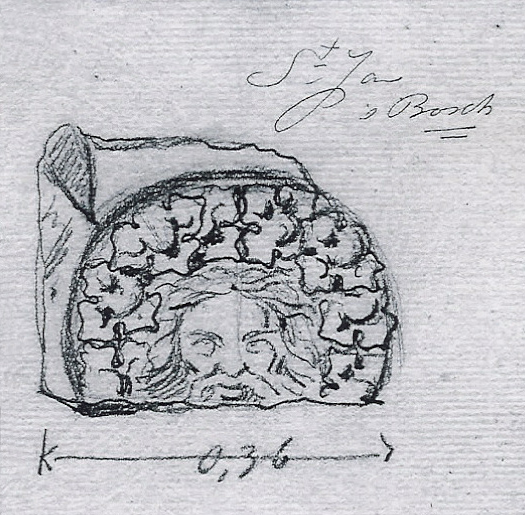 St Jan
's Bosch
0,36